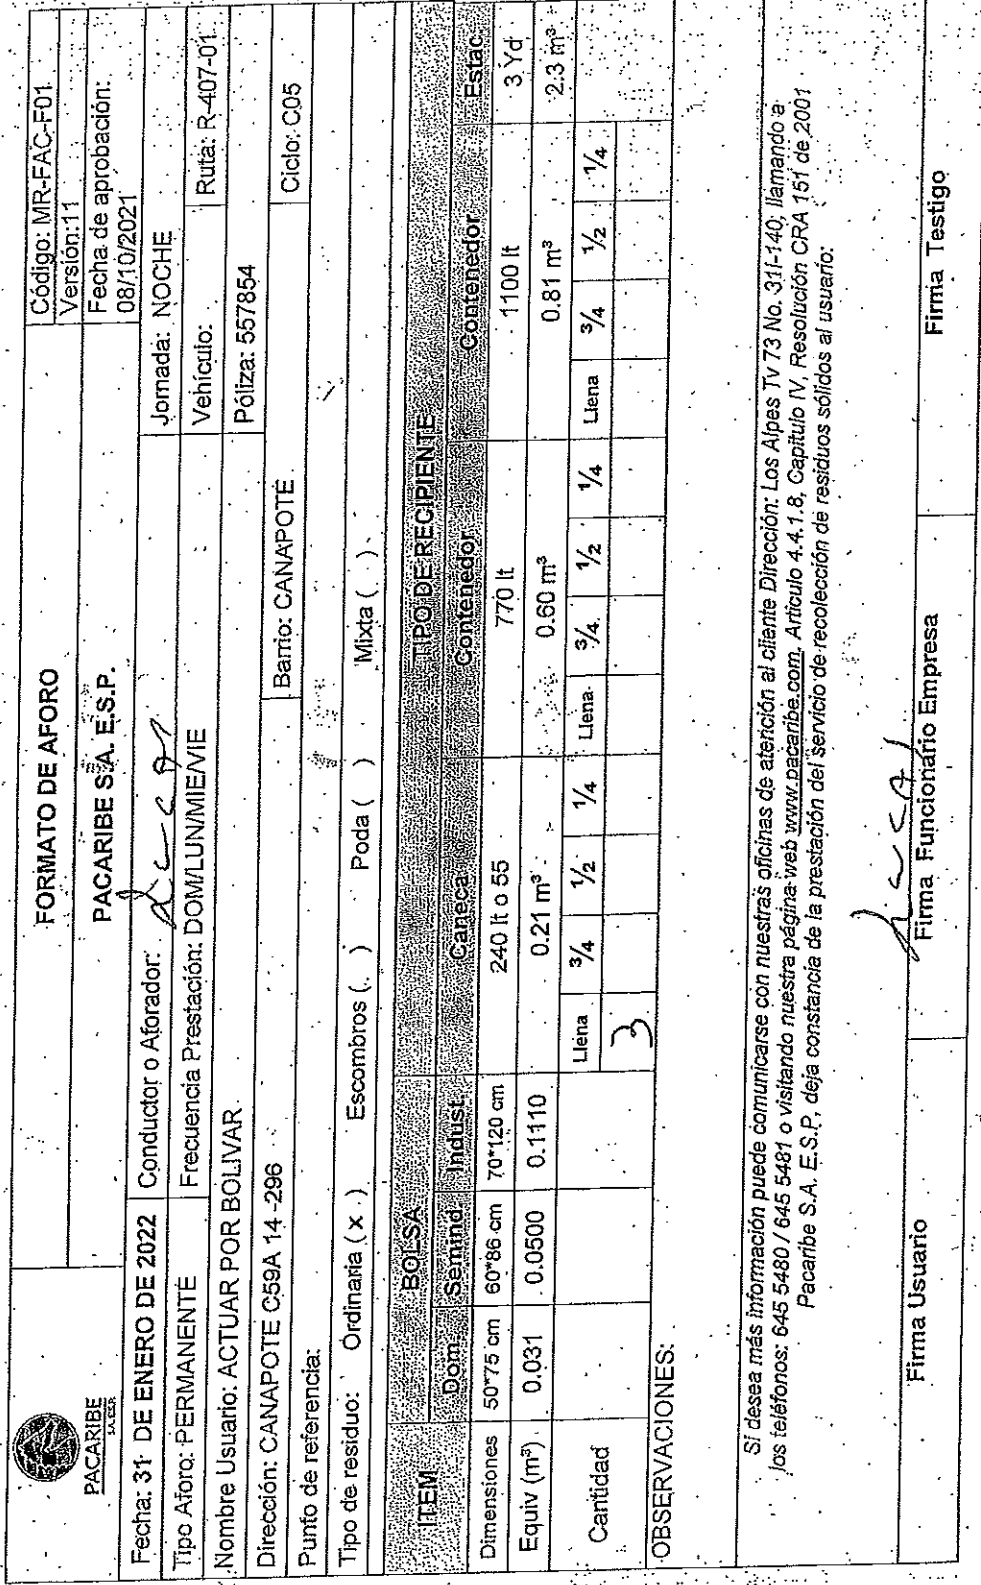 PACARIBE
S.A. E.S.P.
FORMATO DE AFORO
PACARIBE S.A. E.S.P.
Código: MR-FAC-F01
Versión:11
Fecha de aprobación:
08/10/2021
Fecha: 31 DE ENERO DE 2022 Conductor o Aforador: Jornada: NOCHE
Tipo Aforo: PERMANENTE Frecuencia Prestación: DOM/LUN/MIE/VIE Vehículo: Ruta: R-407-01
Nombre Usuario: ACTUAR POR BOLIVAR Póliza: 557854
Dirección: CANAPOTE C59A 14 -296 Barrio: CANAPOTE Ciclo: C05
Punto de referencia:
Tipo de residuo: Ordinaria ( x ) Escombros ( ) Poda ( ) Mixta ( )
ITEM BOLSA TIPO DE RECIPIENTE
Dom. Semind. Indust. Caneca Contenedor Contenedor Estac.
Dimensiones 50*75 cm 60*86 cm 70*120 cm 240 lt o 55 770 lt 1100 lt 3 Yd
Equiv (m³) 0.031 0.0500 0.1110 0.21 m³ 0.60 m³ 0.81 m³ 2.3 m³
Cantidad Llena 3/4 1/2 1/4 Llena 3/4 1/2 1/4 Llena 3/4 1/2 1/4
3
OBSERVACIONES:
Si desea más información puede comunicarse con nuestras oficinas de atención al cliente Dirección: Los Alpes Tv 73 No. 31I-140; llamando a
los teléfonos: 645 5480 / 645 5481 o visitando nuestra página web www.pacaribe.com, Artículo 4.4.1.8, Capitulo IV, Resolución CRA 151 de 2001
Pacaribe S.A. E.S.P, deja constancia de la prestación del servicio de recolección de residuos sólidos al usuario:
Firma Usuario Firma Funcionario Empresa Firma Testigo